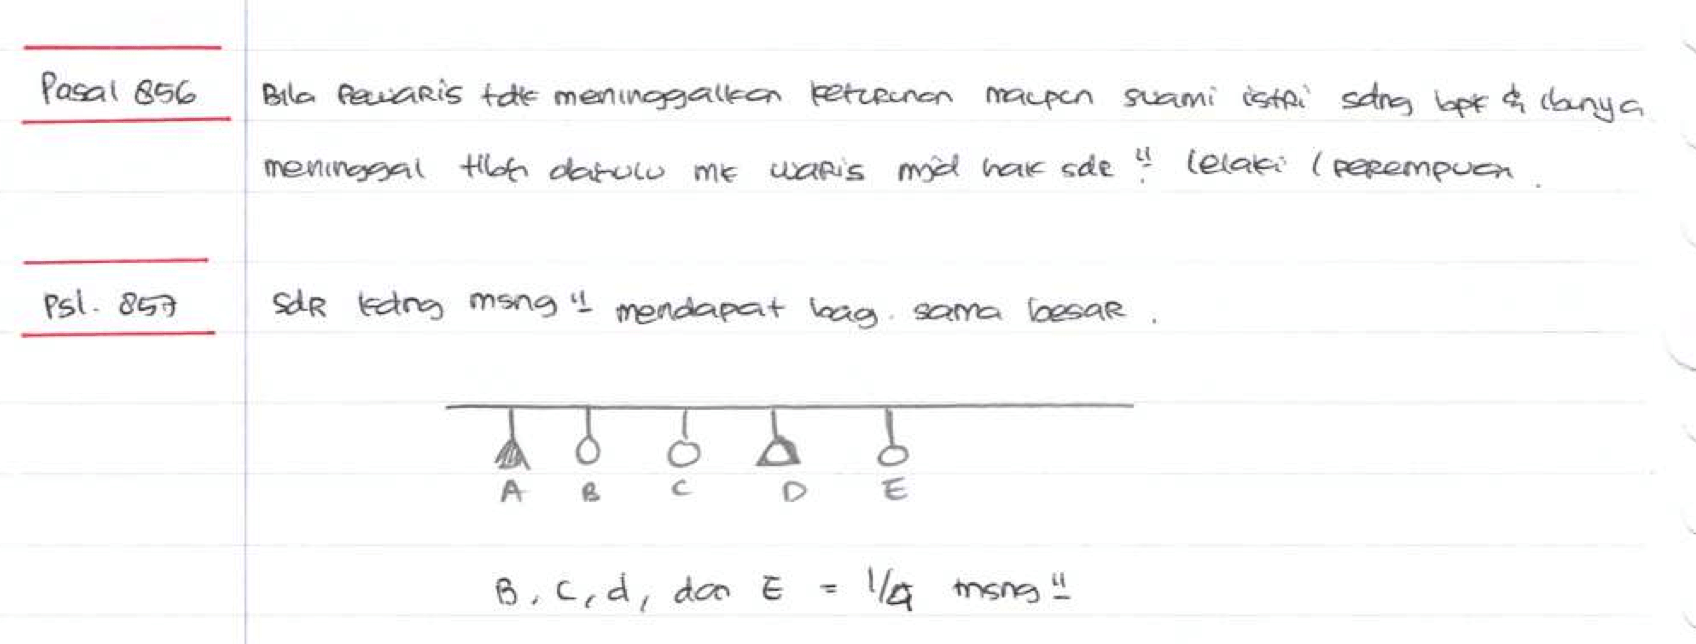 Pasal 856 Bila Pewaris tdk meninggalkan keturunan maupun suami istri sdng bpk & ibunya
meninggal tlbh dahulu mk waris mjd hak sdr " lelaki / perempuan .
Psl. 857 sdR kdng msng " mendapat bag. sama besar .
A B C D E
B, C, d, dan E = 1/4 msng "